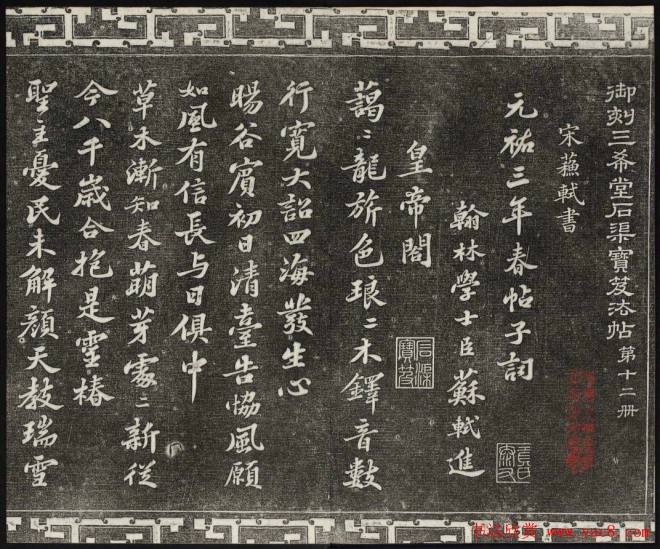 御刻三希堂石渠寶笈法帖第十二冊
宋蘇軾書
元祐三年春帖子詞
翰林學士臣蘇軾進
皇帝閣
藹〻龍旂色琅〻木鐸音數
行寬大詔四海發生心
暘谷賓初日清臺告協風願
如風有信長与日俱中
草木漸知春萌芽處〻新從
今八千歲合抱是靈椿
聖主憂民未解顏天教瑞雪
石渠
寶笈
书法欣赏 www.yac8.com